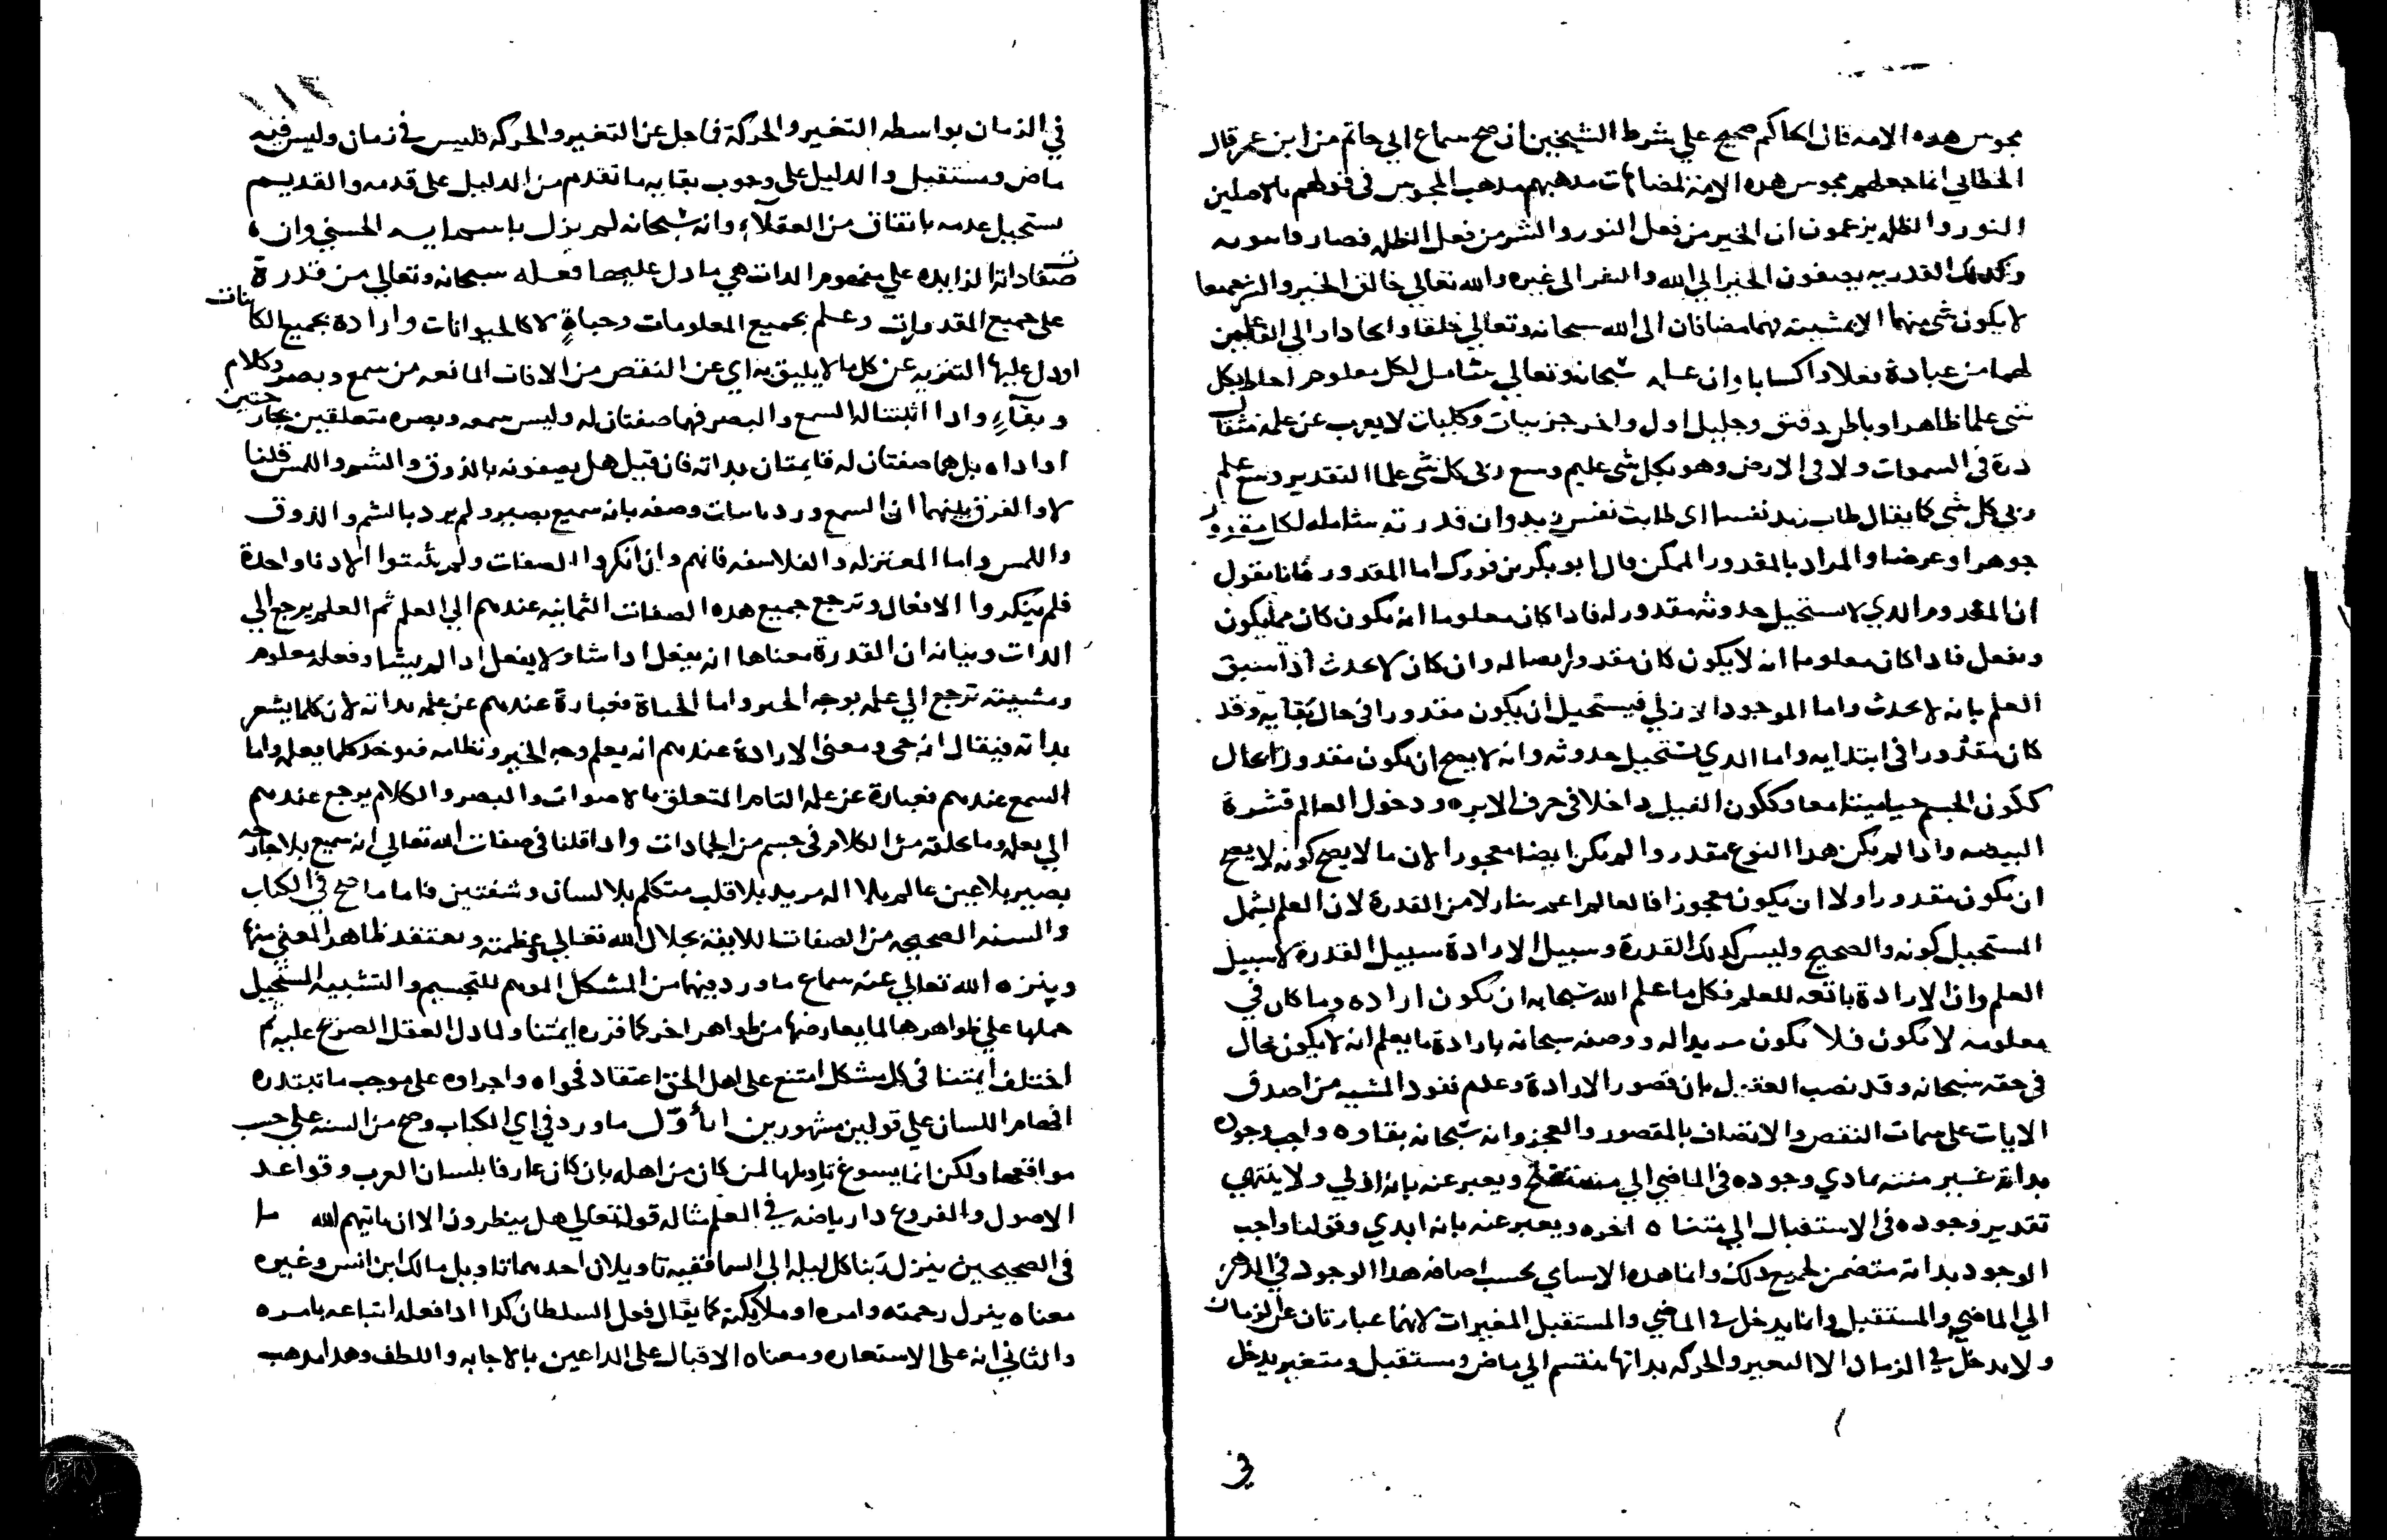 مجوس هده الامه قال الحاكم صحيح علي شرط الشيخين ان صح سماع ابي حاتم من ابن عمر قال
الخطابي انما جعلهم مجوس هده الامة لمضاهات مدهبهم مدهب المجوس في قولهم بالاصلين
النور والظلمه يزعمون ان الخير من فعل النور والشر من فعل الظلمه فصاروا ثنويه
وكدلك القدريه يضيفون الخير الي الله والشر الى غيره والله تعالي خالق الخير والشر جميعا
لا يكون شي منهما الا بمشيته فهما مضافان الى الله سبحانه وتعالي خلقا وايجادا والي الفاعلين
لهما من عبادة فعلا واكتسابا وان علمه سبحانه وتعالي شامل لكل معلوم احاط بكل
شي علما ظاهرا وباطن دقيق وجليل اول واخر جزييات وكليات لا يعزب عن علمه مثقال
درة في السموات ولا في الارض وهو بكل شي عليم وسع ربي كل شي علما التقدير وسع علم
ربي كل شي كما يقال طاب زيد نفسا اى طابت نفس زيد وان قدرته شامله لكل مقدور
جوهرا وعرضا والمراد بالمقدور الممكن قال ابو بكر بن فورك اما المقدور فانا نقول
ان المعدوم الدي لا يستحيل حدوثه مقدور له فادا كان معلوما انه يكون كان مما يكون
ويفعل فادا كان معلوما انه لا يكون كان مقدورا ايضا له وان كان لا يحدث اذا سبق
العلم بانه لا يحدث واما الموجود الازلي فيستحيل ان يكون مقدورا في حال بقايه وقد
كان مقدورا في ابتدايه واما الدي يستحيل حدوثه وانه لا يصح ان يكون مقدورا بحال
ككون الجسم حيا ميتا معا وككون الفيل داخلا في خرف الابره ودخول العالم قشرة
البيضه وادا لم يكن هدا النوع مقدورا لم يكن ايضا معجوزا لان ما لا يصح كونه لا يصح
ان يكون مقدورا ولا ان يكون معجوزا فالعالم اعم تناولا من القدرة لان العلم يشمل
المستحيل كونه والصحيح وليس كدلك القدرة وسبيل الارادة سبيل القدرة لا سبيل
العلم وان الارادة تابعه للعلم فكل ما علم الله سبحانه ان يكون اراده وما كان في
معلومه لا يكون فلا يكون مريدا له ووصفه سبحانه بارادة ما يعلم انه لا يكون محال
في حقه سبحانه وقد نصب العقول بان قصور الارادة وعدم نفود المشيه من اصدق
الايات على سمات النقص والاتصاف بالقصور والعجز وانه سبحانه بقاوه واجب وجوده
بداته غير منته تمادي وجوده في الماضي الي مستفتح ويعبر عنه بانه ازلي ولا ينتهي
تقدير وجوده في الاستقبال الي متناه اخره ويعبر عنه بانه ابدي وقولنا واجب
الوجود بداته متضمن لجميع دلك وانما هده الاسامي بحسب اضافه هدا الوجود في الدهن
الي الماضي والمستقبل وانما يدخل في الماضي والمستقبل المغيرات لانهما عبارتان عن الزمان
ولا يدخل في الزمان الا التغير والحركه بداتها منقسم الي ماض ومستقبل ومتغير يدخل
في
١١٢
في الزمان بواسطه التغير والحركة فما جل عن التغير والحركه فليس في زمان وليس فيه
ماض ومستقبل والدليل على وجوب بقايه ما تقدم من الدليل على قدمه والقديم
يستحيل عدمه باتفاق من العقلاء وانه سبحانه لم يزل باسمايه الحسني وان
صفات داته الزايده علي مفهوم الدات هي ما دل عليها فعله سبحانه وتعالي من قدرة
على جميع المقدورات وعلم بجميع المعلومات وحياة لا كالحيوانات وارادة بجميع الكاينات
او دل عليها التنزيه عن كل ما لا يليق به اي عن النقص من الافات المانعه من سمع وبصر وكلام
وبقاء وادا اثبتنا له السمع والبصر فهما صفتان له وليس سمعه وبصره متعلقين بجارحتين
او اداه بل هما صفتان له قايمتان بداته فان قيل هل يصفونه بالذوق والشم واللمس قلنا
لا والفرق بينهما ان السمع ورد باثبات وصفه بانه سميع بصير ولم يرد بالشم والذوق
واللمس واما المعتزله والفلاسفه فانهم وان انكروا الصفات ولم يثبتوا الا دتا واحدة
فلم ينكروا الافعال وترجع جميع هده الصفات الثمانيه عندهم الي العلم ثم العلم يرجع الي
الدات وبيانه ان القدرة معناها انه يفعل ادا شا ولا يفعل ادا لم يشا وفعله معلوم
ومشيته ترجع الي علمه بوجه الخير واما الحياة فعبارة عندهم عن علمه بداته لان كلما يشعر
بداته فيقال انه حي ومعنى الارادة عندهم انه يعلم وجه الخير ونظامه فيوجد كلما يعلمه واما
السمع عندهم فعبارة عن علمه التام المتعلق بالاصوات والبصر والكلام يرجع عندهم
الي يعلمه وما يخلقه من الكلام في جسم من الجمادات وادا قلنا في صفات الله تعالي انه سميع بلا جارحه
بصير بلا عين عالم بلا اله مريد بلا قلب متكلم بلا لسان وشفتين فاما ما صح في الكتاب
والسنه الصحيحه من الصفات اللايقه بجلال الله تعالي وعظمته ويعتقد ظاهر المعني منها
وينزه الله تعالي عند سماع ما ورد فيها من المشكل الموهم للتجسيم والتشبيه المستحيل
حملها علي ظواهرها لما يعارضها من ظواهر اخر كما قرره ايمتنا ولما دل العقل الصريح عليه ثم
اختلف ايمتنا في كل مشكل امتنع على اهل الحق اعتقاد فحواه واجراوه على موجب ما تبتدره
افهام اللسان علي قولين مشهورين انأول ما ورد في اي الكتاب وصح من السنه علي حسب
مواقعها ولكن انما يسوغ تاويلها لمن كان من اهله بان كان عارفا بلسان العرب وقواعد
الاصول والفروع دا رياضه في العلم مثاله قوله تعالي هل ينظرون الا ان ياتيهم الله ما
في الصحيحين ينزل ربنا كل ليله الي السما ففيه تاويلان احدهما تاويل مالك ابن انس وغيره
معناه ينزل رحمته وامره او ملايكته كما يقال فعل السلطان كدا ادا فعله اتباعه بامره
والثاني انه على الاستعاره ومعناه الاقبال على الداعين بالاجابه واللطف وهدا مدهب